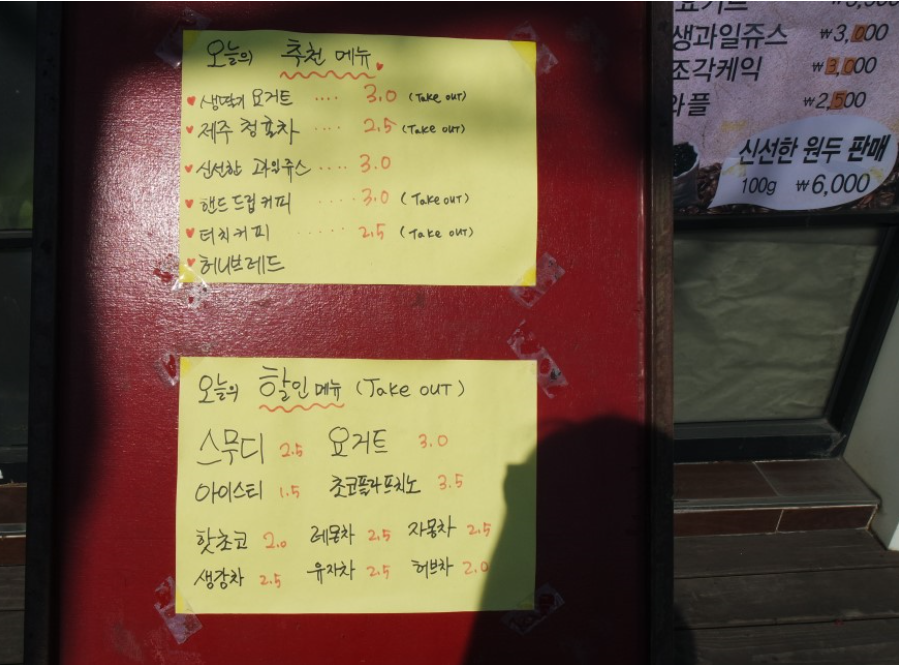 오늘의 추천 메뉴
생딸기 요거트 .... 3.0 (Take out)
제주 청귤차 .... 2.5 (Take out)
신선한 과일쥬스 .... 3.0
핸드드립커피 ..... 3.0 (Take out)
더치커피 ..... 2.5 (Take out)
허니브레드
오늘의 할인메뉴 (Take out)
스무디 2.5 요거트 3.0
아이스티 1.5 초코플라프치노 3.5
핫초코 2.0 레몬차 2.5 자몽차 2.5
생강차 2.5 유자차 2.5 허브차 2.0
요거트
생과일쥬스 ₩3,000
조각케익 ₩3,000
와플 ₩2,500
신선한 원두 판매
100g ₩6,000